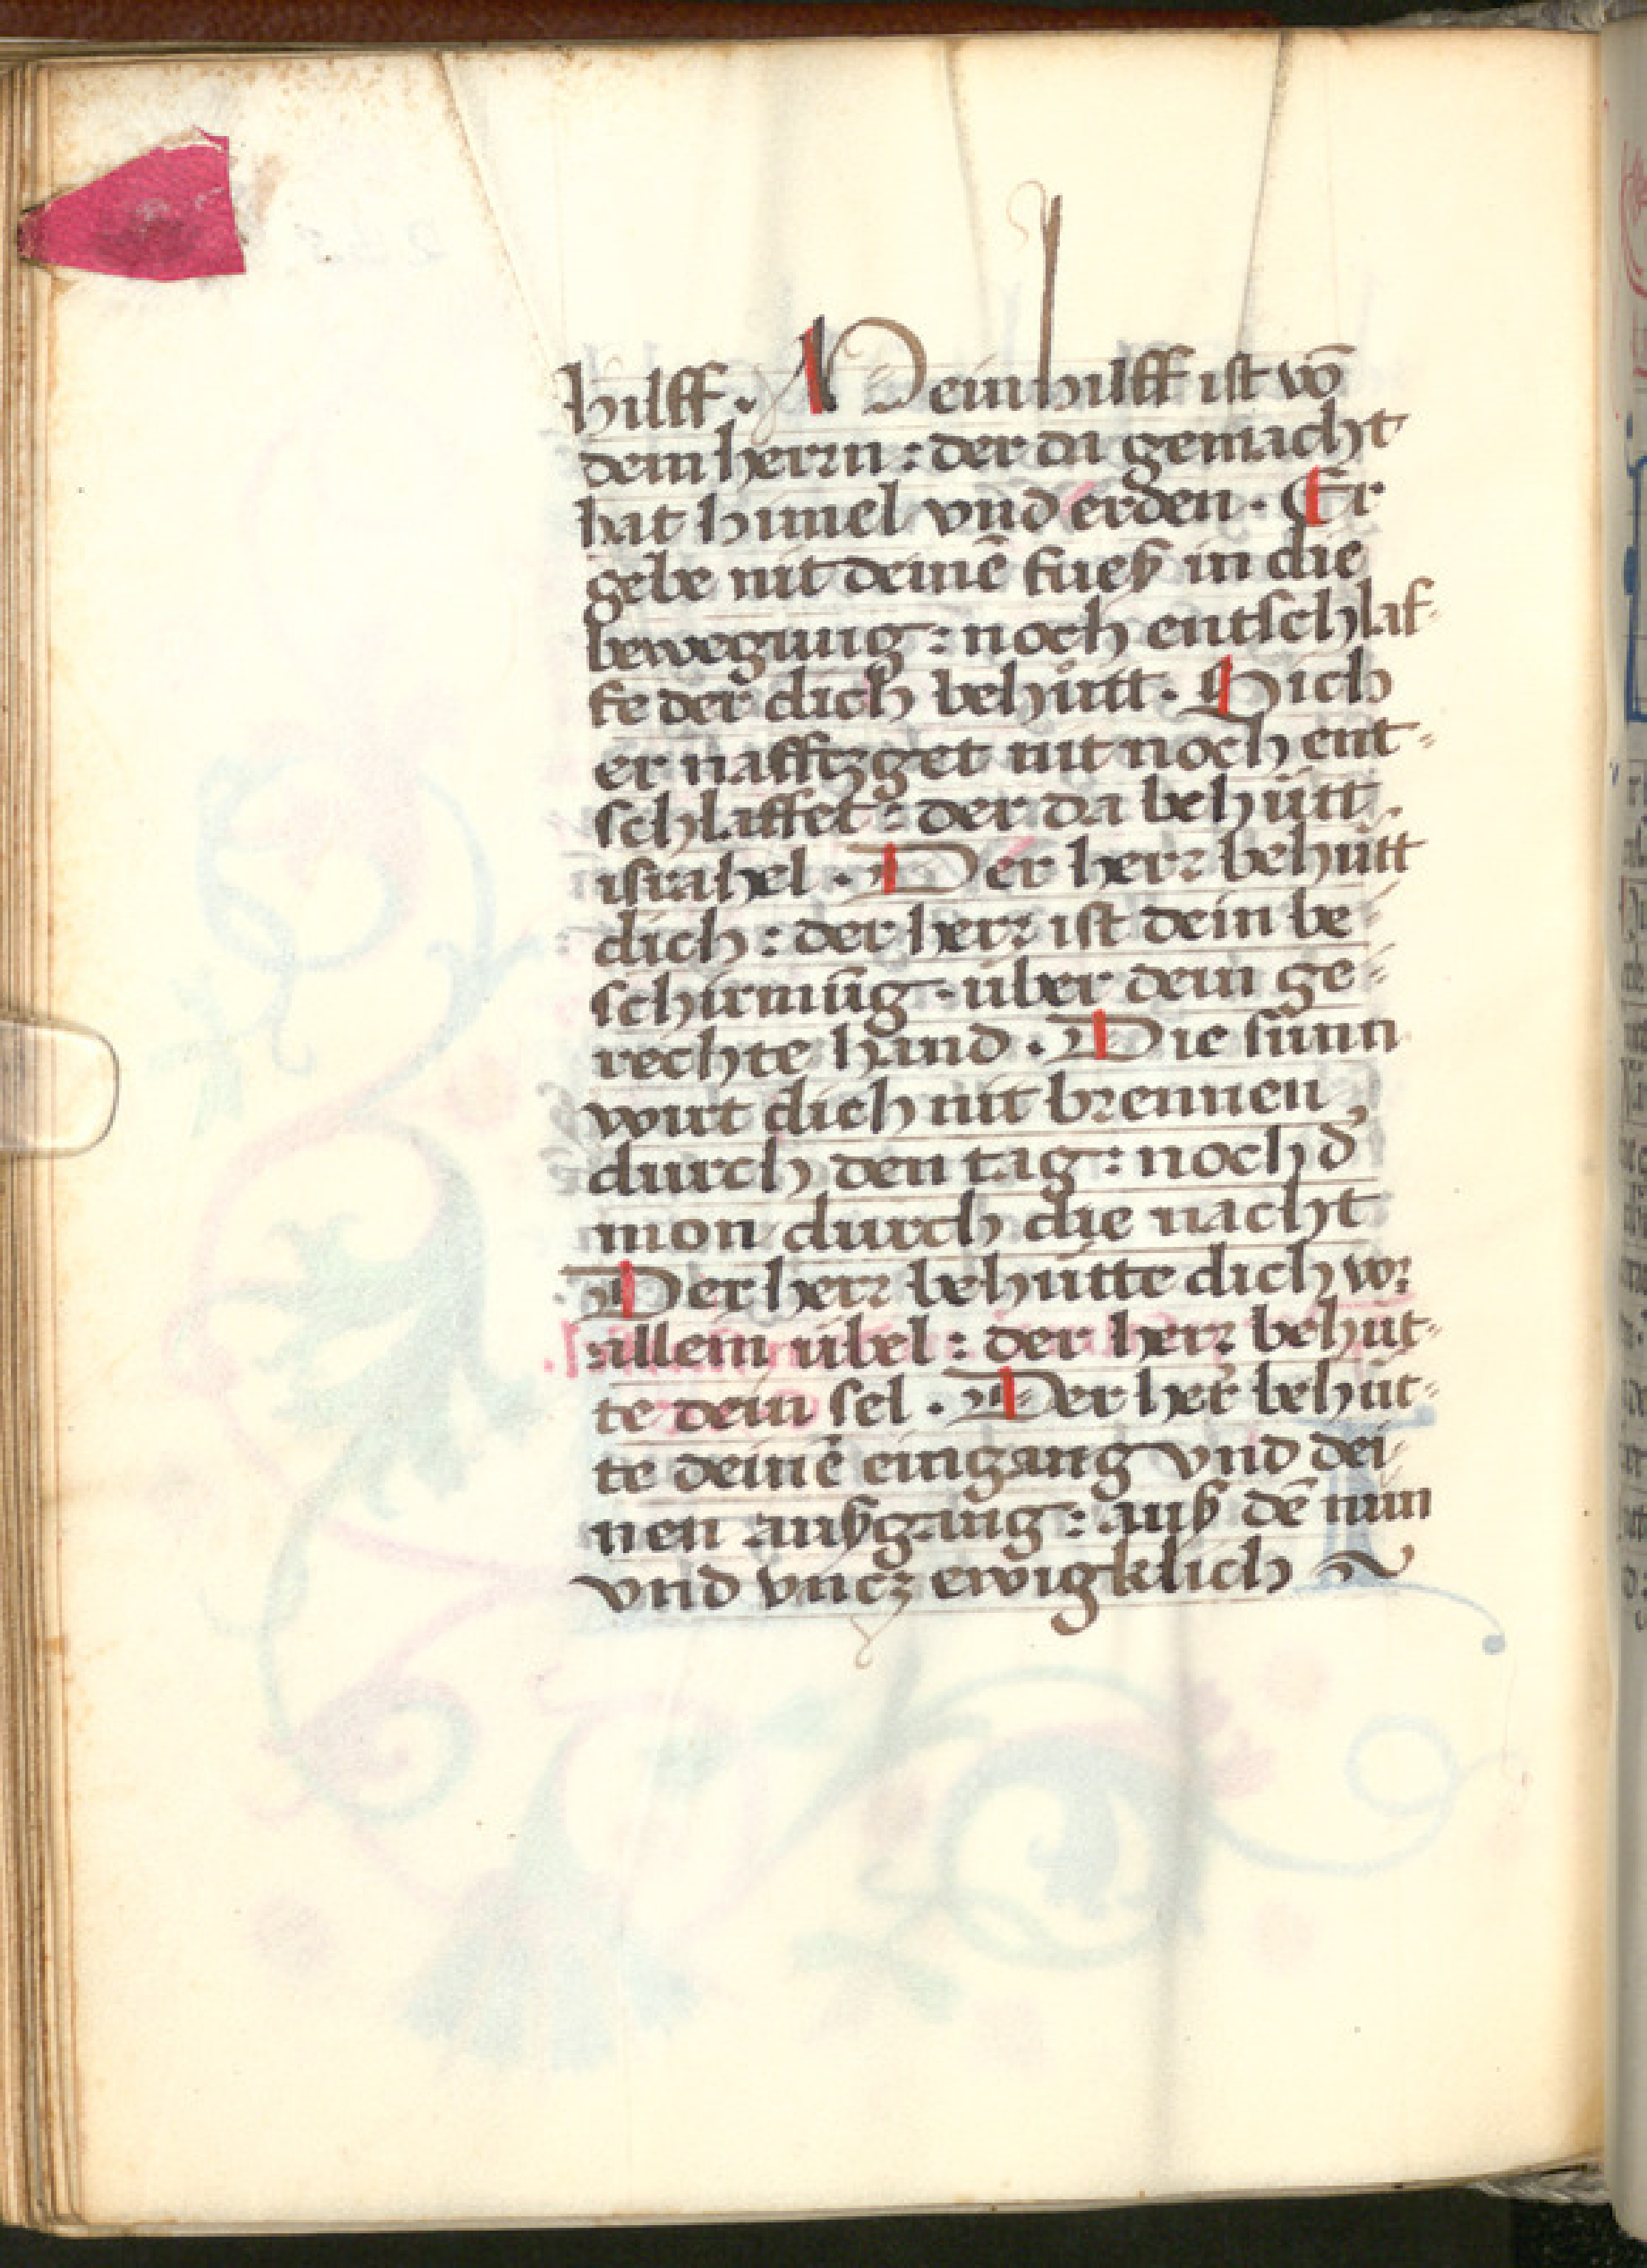 hilff · Mein hilff ist vō
dem herrn : der da gemacht
hat himel vnd erden · Er
gebe nit deinē fueß in die
bewegung : noch entschlaf-
fe der dich behütt · Sich
er nafftzget nit noch ent-
schlaffet : der da behütt
israhel · Der herr behütt
dich : der herr ist dein be-
schirmūg · über dein ge-
rechte hand · Die sunn
wirt dich nit brennen
durch den tag : noch d̄
mon durch die nacht
Der herr behütte dich vor
allem übel : der herr behüt-
te dein sel · Der herr behüt-
te deinē eingang vnd dei-
nen außgang : auß dē nun
vnd vncz ewigklich